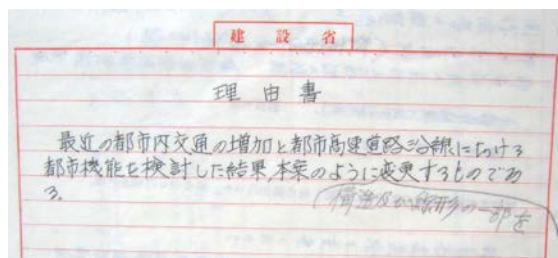 建設省
理由書
最近の都市内交通の増加と都市高速道路沿線における
都市機能を検討した結果、本案のように変更するものであ
る。
構造及び線形の一部を